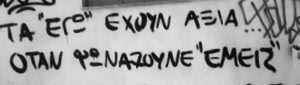 ΤΑ "ΕΓΩ" ΕΧΟΥΝ ΑΞΙΑ...
ΟΤΑΝ ΦΩΝΑΖΟΥΝΕ "ΕΜΕΙΣ"